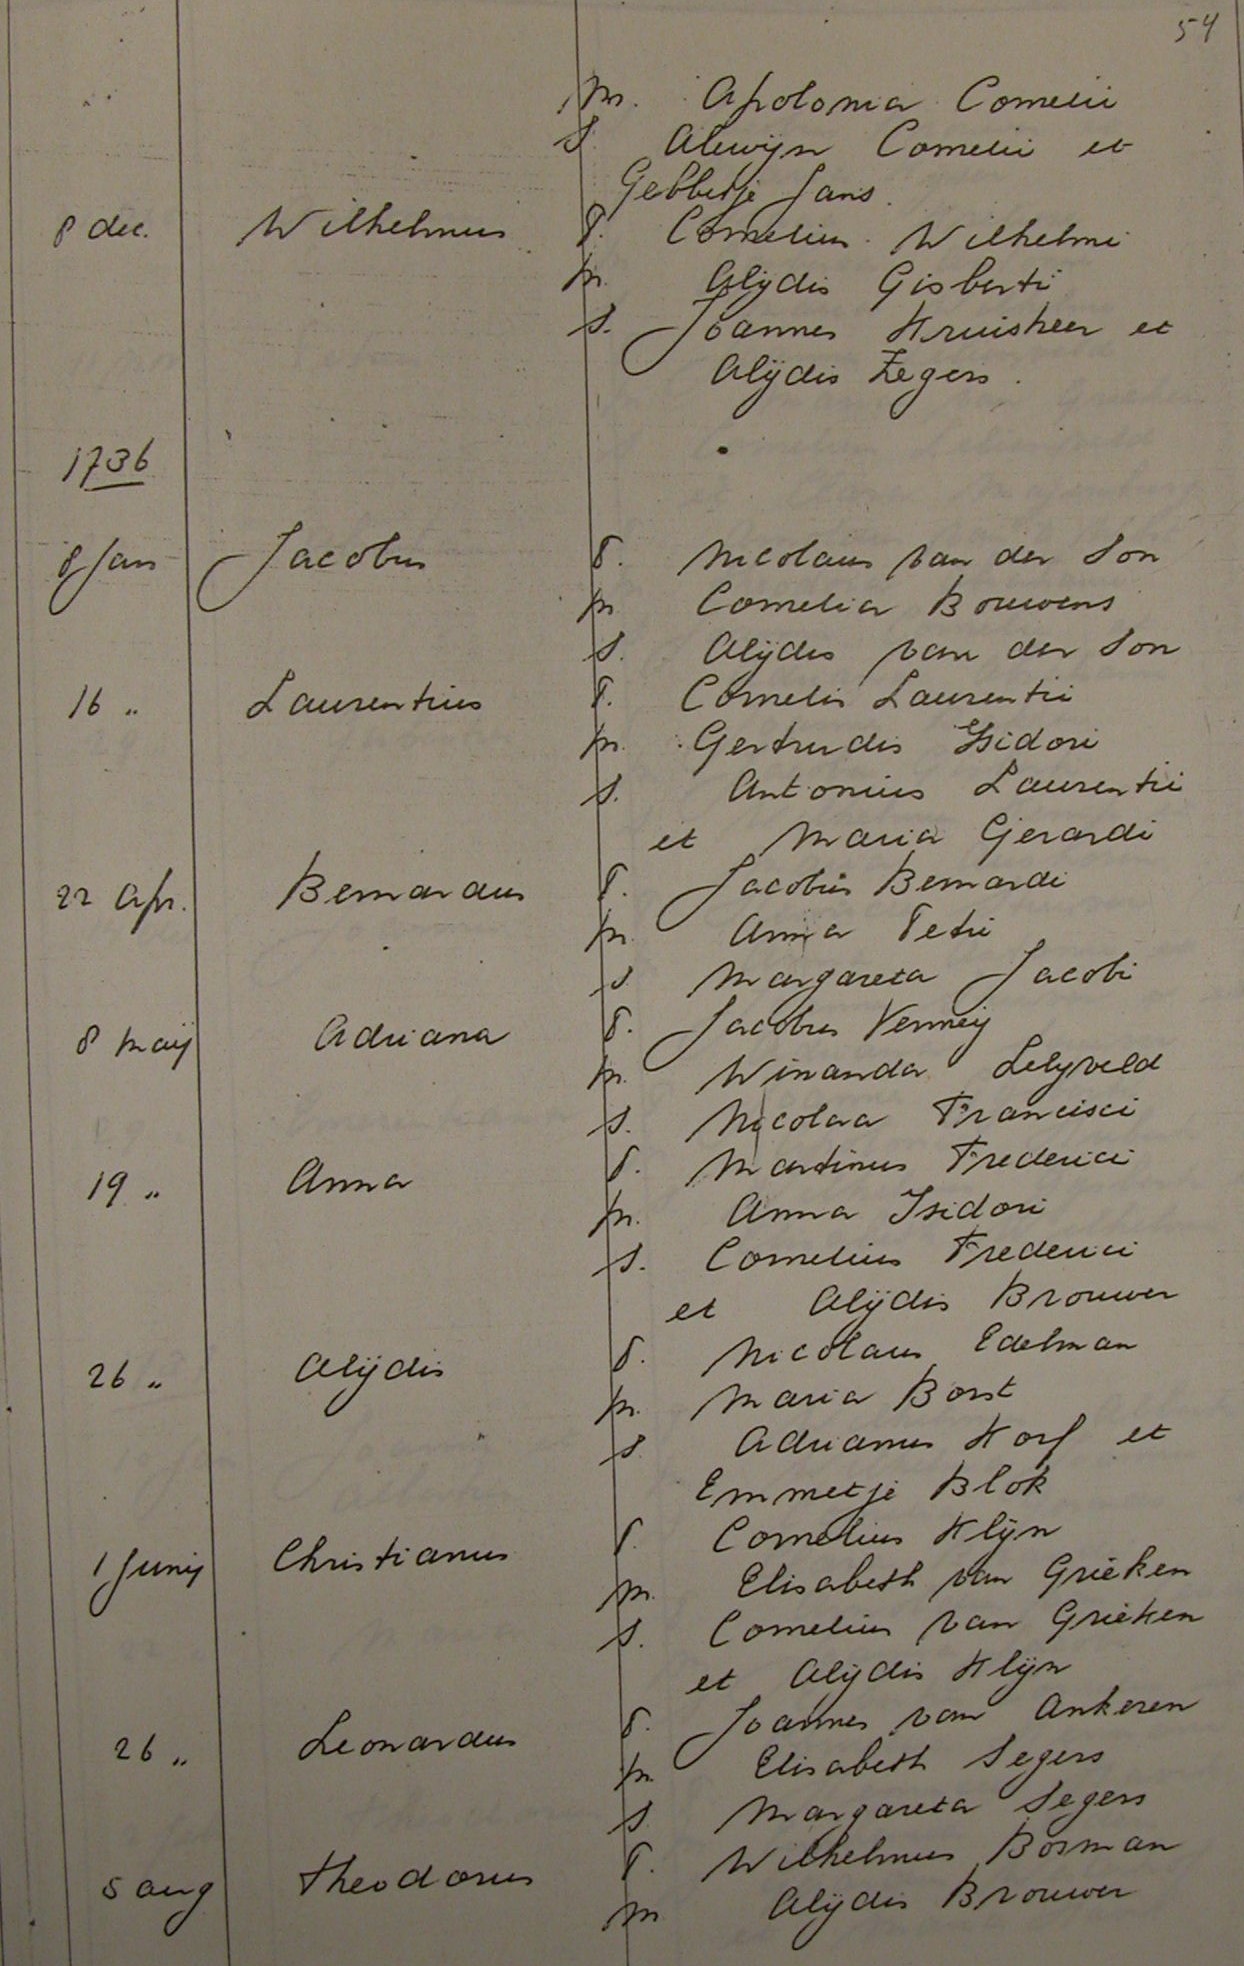 54
m. Apolonia Cornelii
S. Alewijn Cornelii et
Gebbetje Jans.
8 dec. Wilhelmus P. Cornelius Wilhelmi
m. Alijdis Gisberti
S. Joannes Kruisheer et
Alijdis Zegers.
1736
8 Jan Jacobus P. Nicolaus van der Son
m Cornelia Bouwens
S. Alijdis van der Son
16 „ Laurentius P. Cornelis Laurentii
m. Gertrudis Isidori
S. Antonius Laurentii
et Maria Gerardi
22 Apr. Bernardus P. Jacobus Bernardi
m Anna Petri
S Margareta Jacobi
8 Maij Adriana P. Jacobus Vermeij
m. Winanda Lelyveld
S. Nicolaa Francisci
19 „ Anna P. Martinus Frederici
m. Anna Isidori
S. Cornelius Frederici
et Alijdis Brouwer
26 „ Alijdis P. Nicolaus Edelman
m. Maria Borst
S Adrianus Korf et
Emmetje Blok
1 Junij Christianus P. Cornelius Klijn
m. Elisabeth van Grieken
S. Cornelius van Grieken
et Alijdis Klijn
26 „ Leonardus P. Joannes van Ankeren
m Elisabeth Segers
S Margareta Segers
5 aug Theodorus P. Wilhelmus Bosman
m Alijdis Brouwer